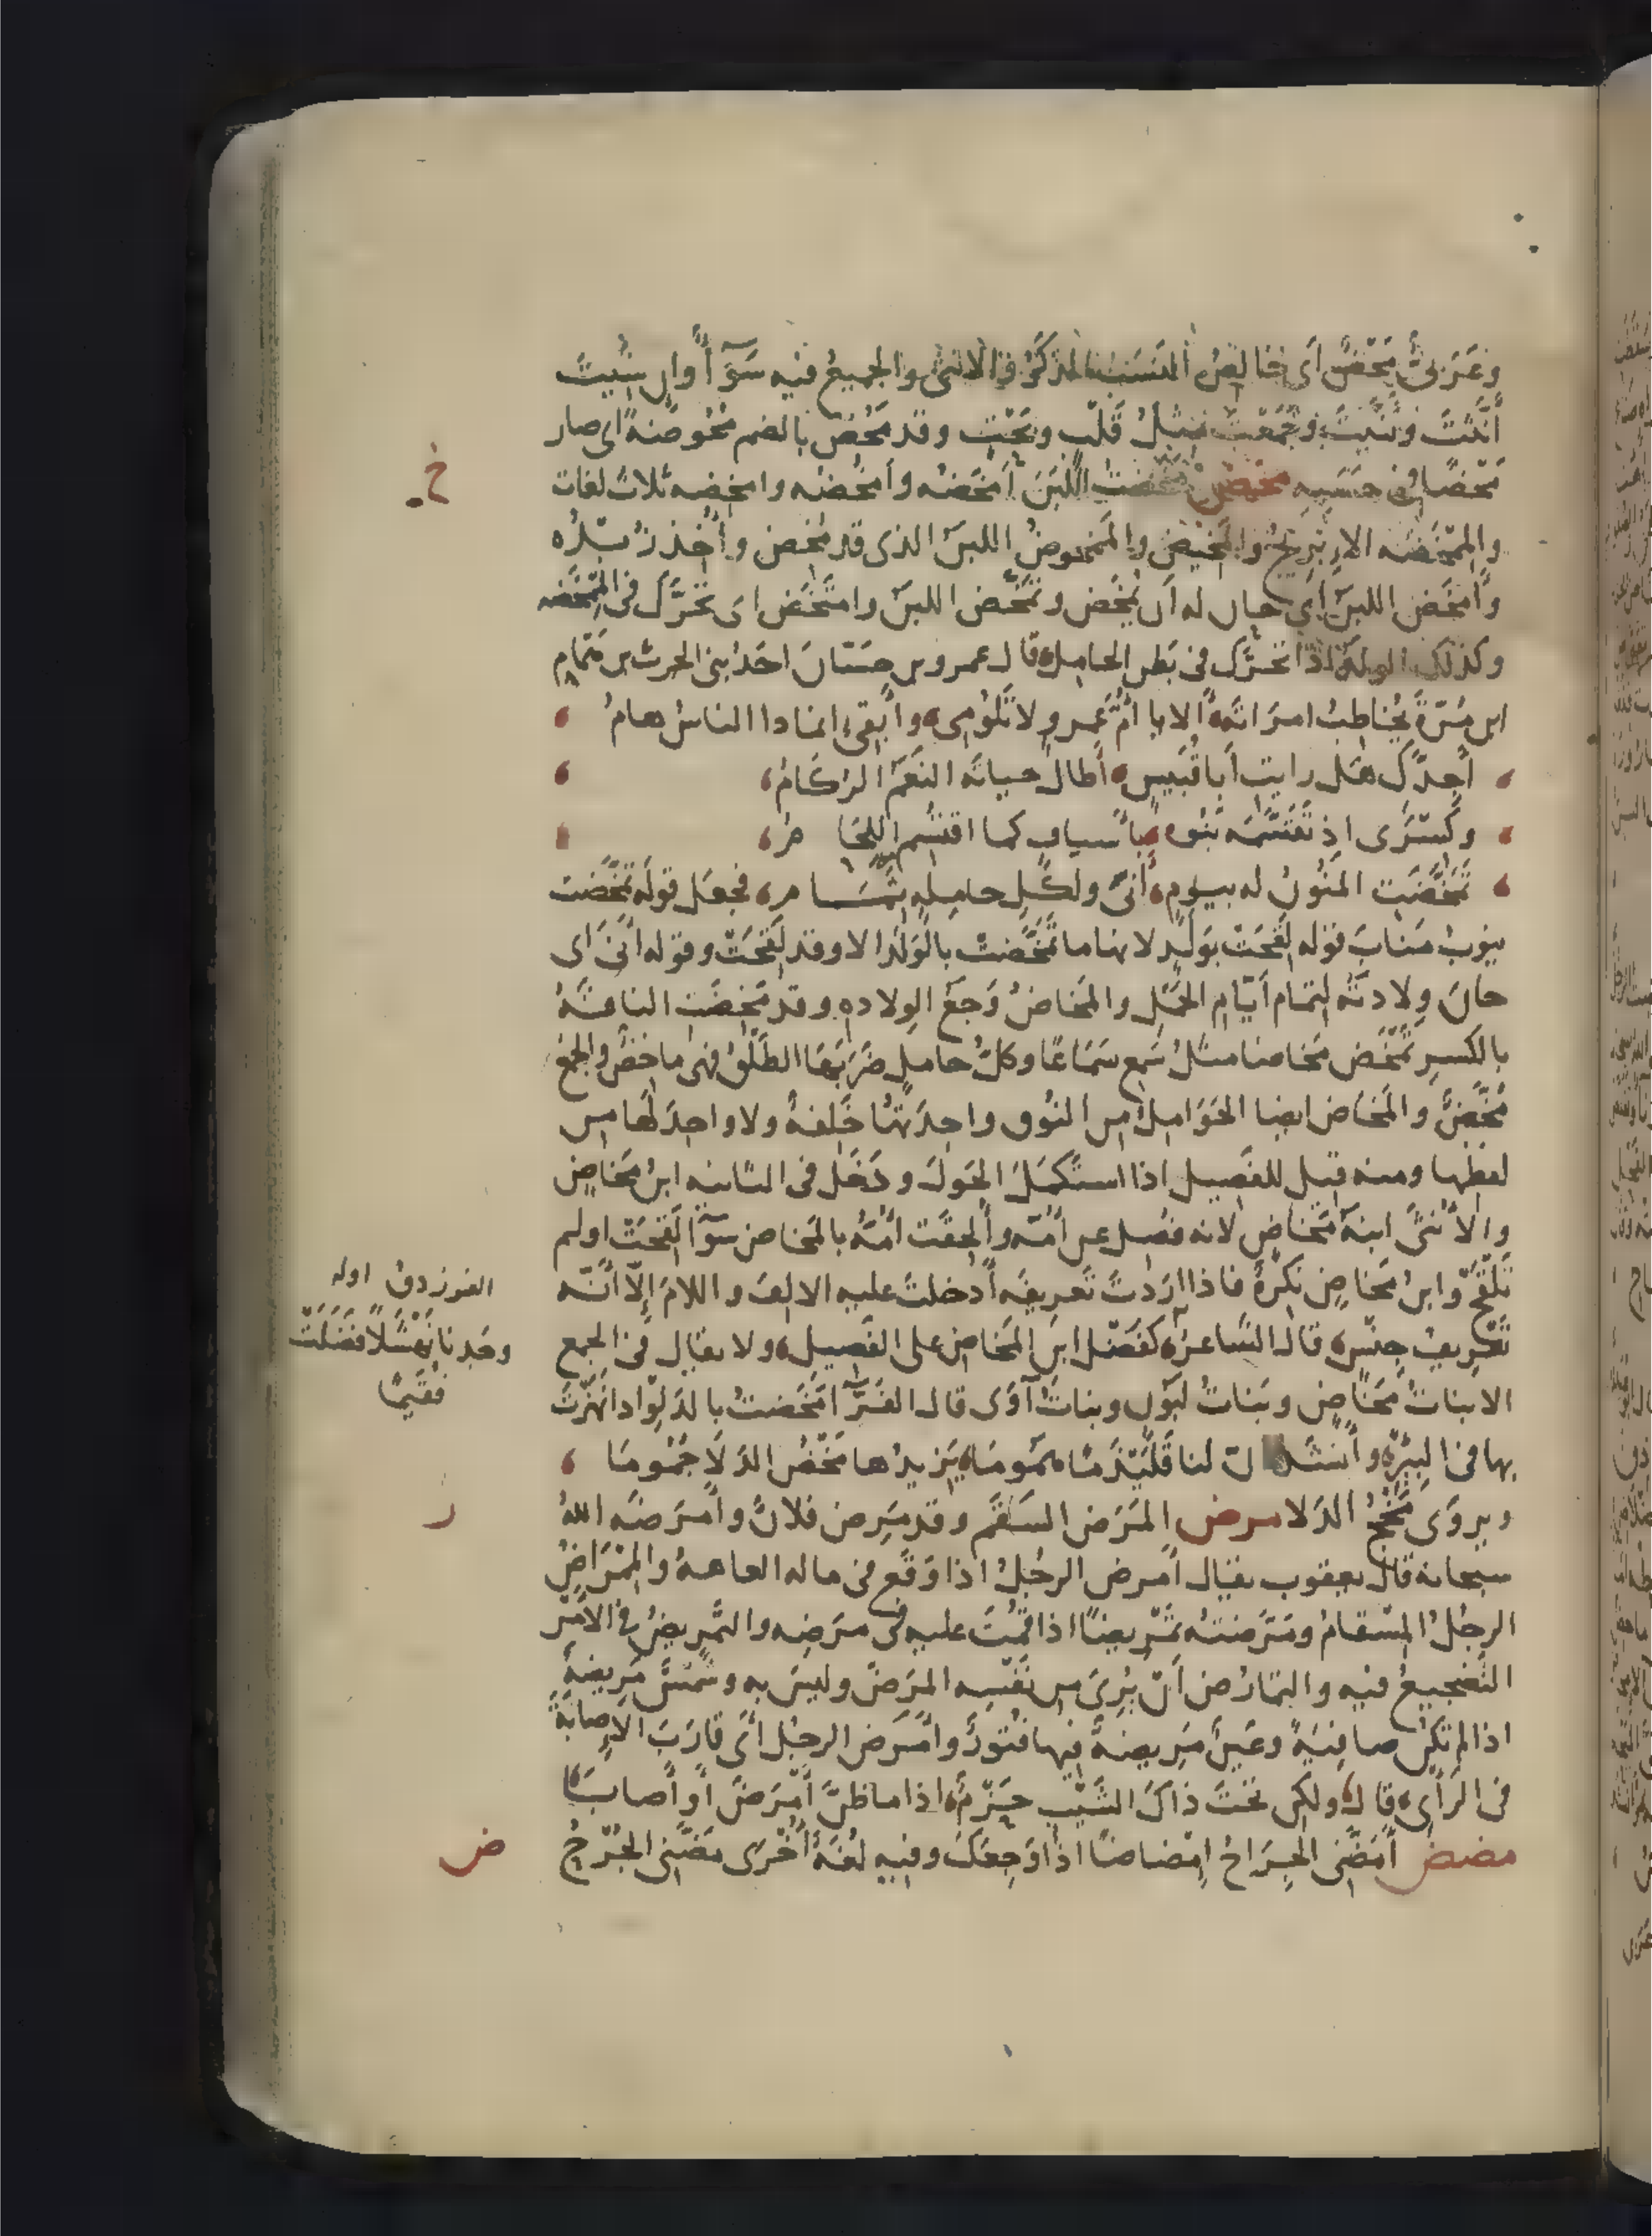 وعَرَبىٌّ مَحْضٌ أى خالِصُ النَسَبِ المذكَّرُ والانثى والجميعُ فيه سَوَآءٌ وان شِئتَ
أَنَّثْتَ وثَنَّيتَ وجَمَعْتَ مثلُ قَلْبٍ وبَحْتٍ وقد مَحُضَ بالضم مُحُوضَةً اى صار
مَحْضًا فى حَسَبِهِ مخض مَخَضْتُ اللَبَنَ أمخَضُه وأمخُضُه وامخِضه ثلاث لغات
والمِمْخَضَه الإِبْرِيجُ والمَخِيضُ والمَمْخوضُ اللبنُ الذى قد مُخِض وأُخِذ زُبْدُه
وأَمْخَض اللبنُ اى حان له أن يُمْخَض وتَمَخَّض اللبنُ وامتَخَض اى تحرَّك فى المِمْخَضه
وكذلك الولدُ اذا تحرَّك فى بَطن الحامِل قال عمرو بن حَسَّانَ احَدُ بنى الحرث بن هَمّام
ابن مُرّةَ يُخاطِبُ امرَاتَه أَلا يا أُمَّ عَمرٍو لا تَلُومِى وأَبْقى انما ذا الناسُ هامُ
أَجِدَّكِ هَل رايتِ أَبا قُبَيسٍ أَطالَ حياتَه النَعَمُ الرُكَامُ
وكِسْرَى اذ تَقَسَّمَه بَنُوه بأَسيافٍ كما اقتُسِم اللِحَامُ
تَمَخَّضَت المَنُونُ له بيومٍ أَنَى ولكُلِ حامِلةٍ تِمَامُ فجعَل قولَه تَمخَّضت
ينوبُ مَنابَ قوله لَقِحَتْ بوَلَدٍ لانها ما تَمَخَّضتْ بالوَلَد الا وقد لَقِحَتْ وقوله أَنَى اى
حانَ وِلادتُه لِتمام أيّام الحَمْل والمَخَاضُ وَجَعُ الوِلاده وقد مَخِضَت الناقَةُ
بالكسرِ تَمْخَض مَخاضا مثلُ سَمِع سَمَاعًا وكلُّ حاملٍ ضَرَبَها الطَلْقُ فهى ماخِضٌ والجمع
مُخَّضٌ والمَخاضُ ايضا الحَوَامِلُ من النُوق واحِدَتُها خَلِفةٌ ولا واحِدَ لها من
لفظها ومنه قيل للفَصِيل اذا استَكْمَلَ الحَولَ ودَخَل فى الثانيه ابنُ مَخاضٍ
والأُنثى ابنَةُ مَخاضٍ لانه فُصِل عن أُمّه وأُلحِقَت أُمُّهُ بالمَخاض سَوَآءٌ لَقِحَتْ او لم
تَلْقَحْ وابنُ مَخاضٍ نَكِرَةٌ فاذا اردتَ تَعريفَه أَدخلتَ عليه الالِفَ واللامَ إِلّا أَنّه
تَعْرِيفُ جِنْسٍ قال الشاعر كَفَضْلِ ابنِ المَخاضِ على الفَصِيلِ ولا يقال فى الجمع
الا بناتُ مَخَاضٍ وبَناتُ لَبُونٍ وبناتُ آوَى قال الفَرَّآءُ مَخَضتُ بالدَلْوِ اذا نَهَزْتَ
بها فى البِئْرِ وأَنشَد انّ لنا قَلَيْذَمًا هَمُومَا يَزيدُها مَخْضُ الدَلَا جُمُومَا
ويروَى مَخْجُ الدَلا مرض المَرَضُ السَقَم وقد مَرِض فلانٌ وأَمرَضَه اللهُ
سبحانه قال يعقوب يقال أَمرض الرجُلُ اذا وَقَع فى ماله العاهةُ والمِمْرَاضُ
الرجُلُ المِسْقامُ ومَرَّضتُه تَمْرِيضًا اذا قُمْتَ عليه فى مرَضِه والتَمْرِيضُ فى الأَمْرِ
التَضْجِيعُ فيه والتمارُض أَنْ يُرِىَ من نَفْسِه المَرَضَ وليسَ به وشَمْسٌ مَرِيضةٌ
اذا لم تكن صافِيَةً وعَينٌ مَرِيضَةٌ فيها فُتُورٌ وأَمرَض الرجُل أى قارَبَ الإصابَةَ
فى الرَأىِ قال ولكن تحتَ ذاكَ الشَيْبِ حَزْمٌ اذا ما ظنَّ أَمْرَضَ أو أَصابَا
مضض أَمَضَّنِى الجِرَاحُ إِمْضاضًا اذا أوجَعَك وفيه لُغَةٌ أُخْرَى مَضَّنِى الجُرْحُ
خ
الفرزدق اوله
وجَدنا نَهْشَلًا فَضَلَتْ
فُقَيمًا
ر
ض